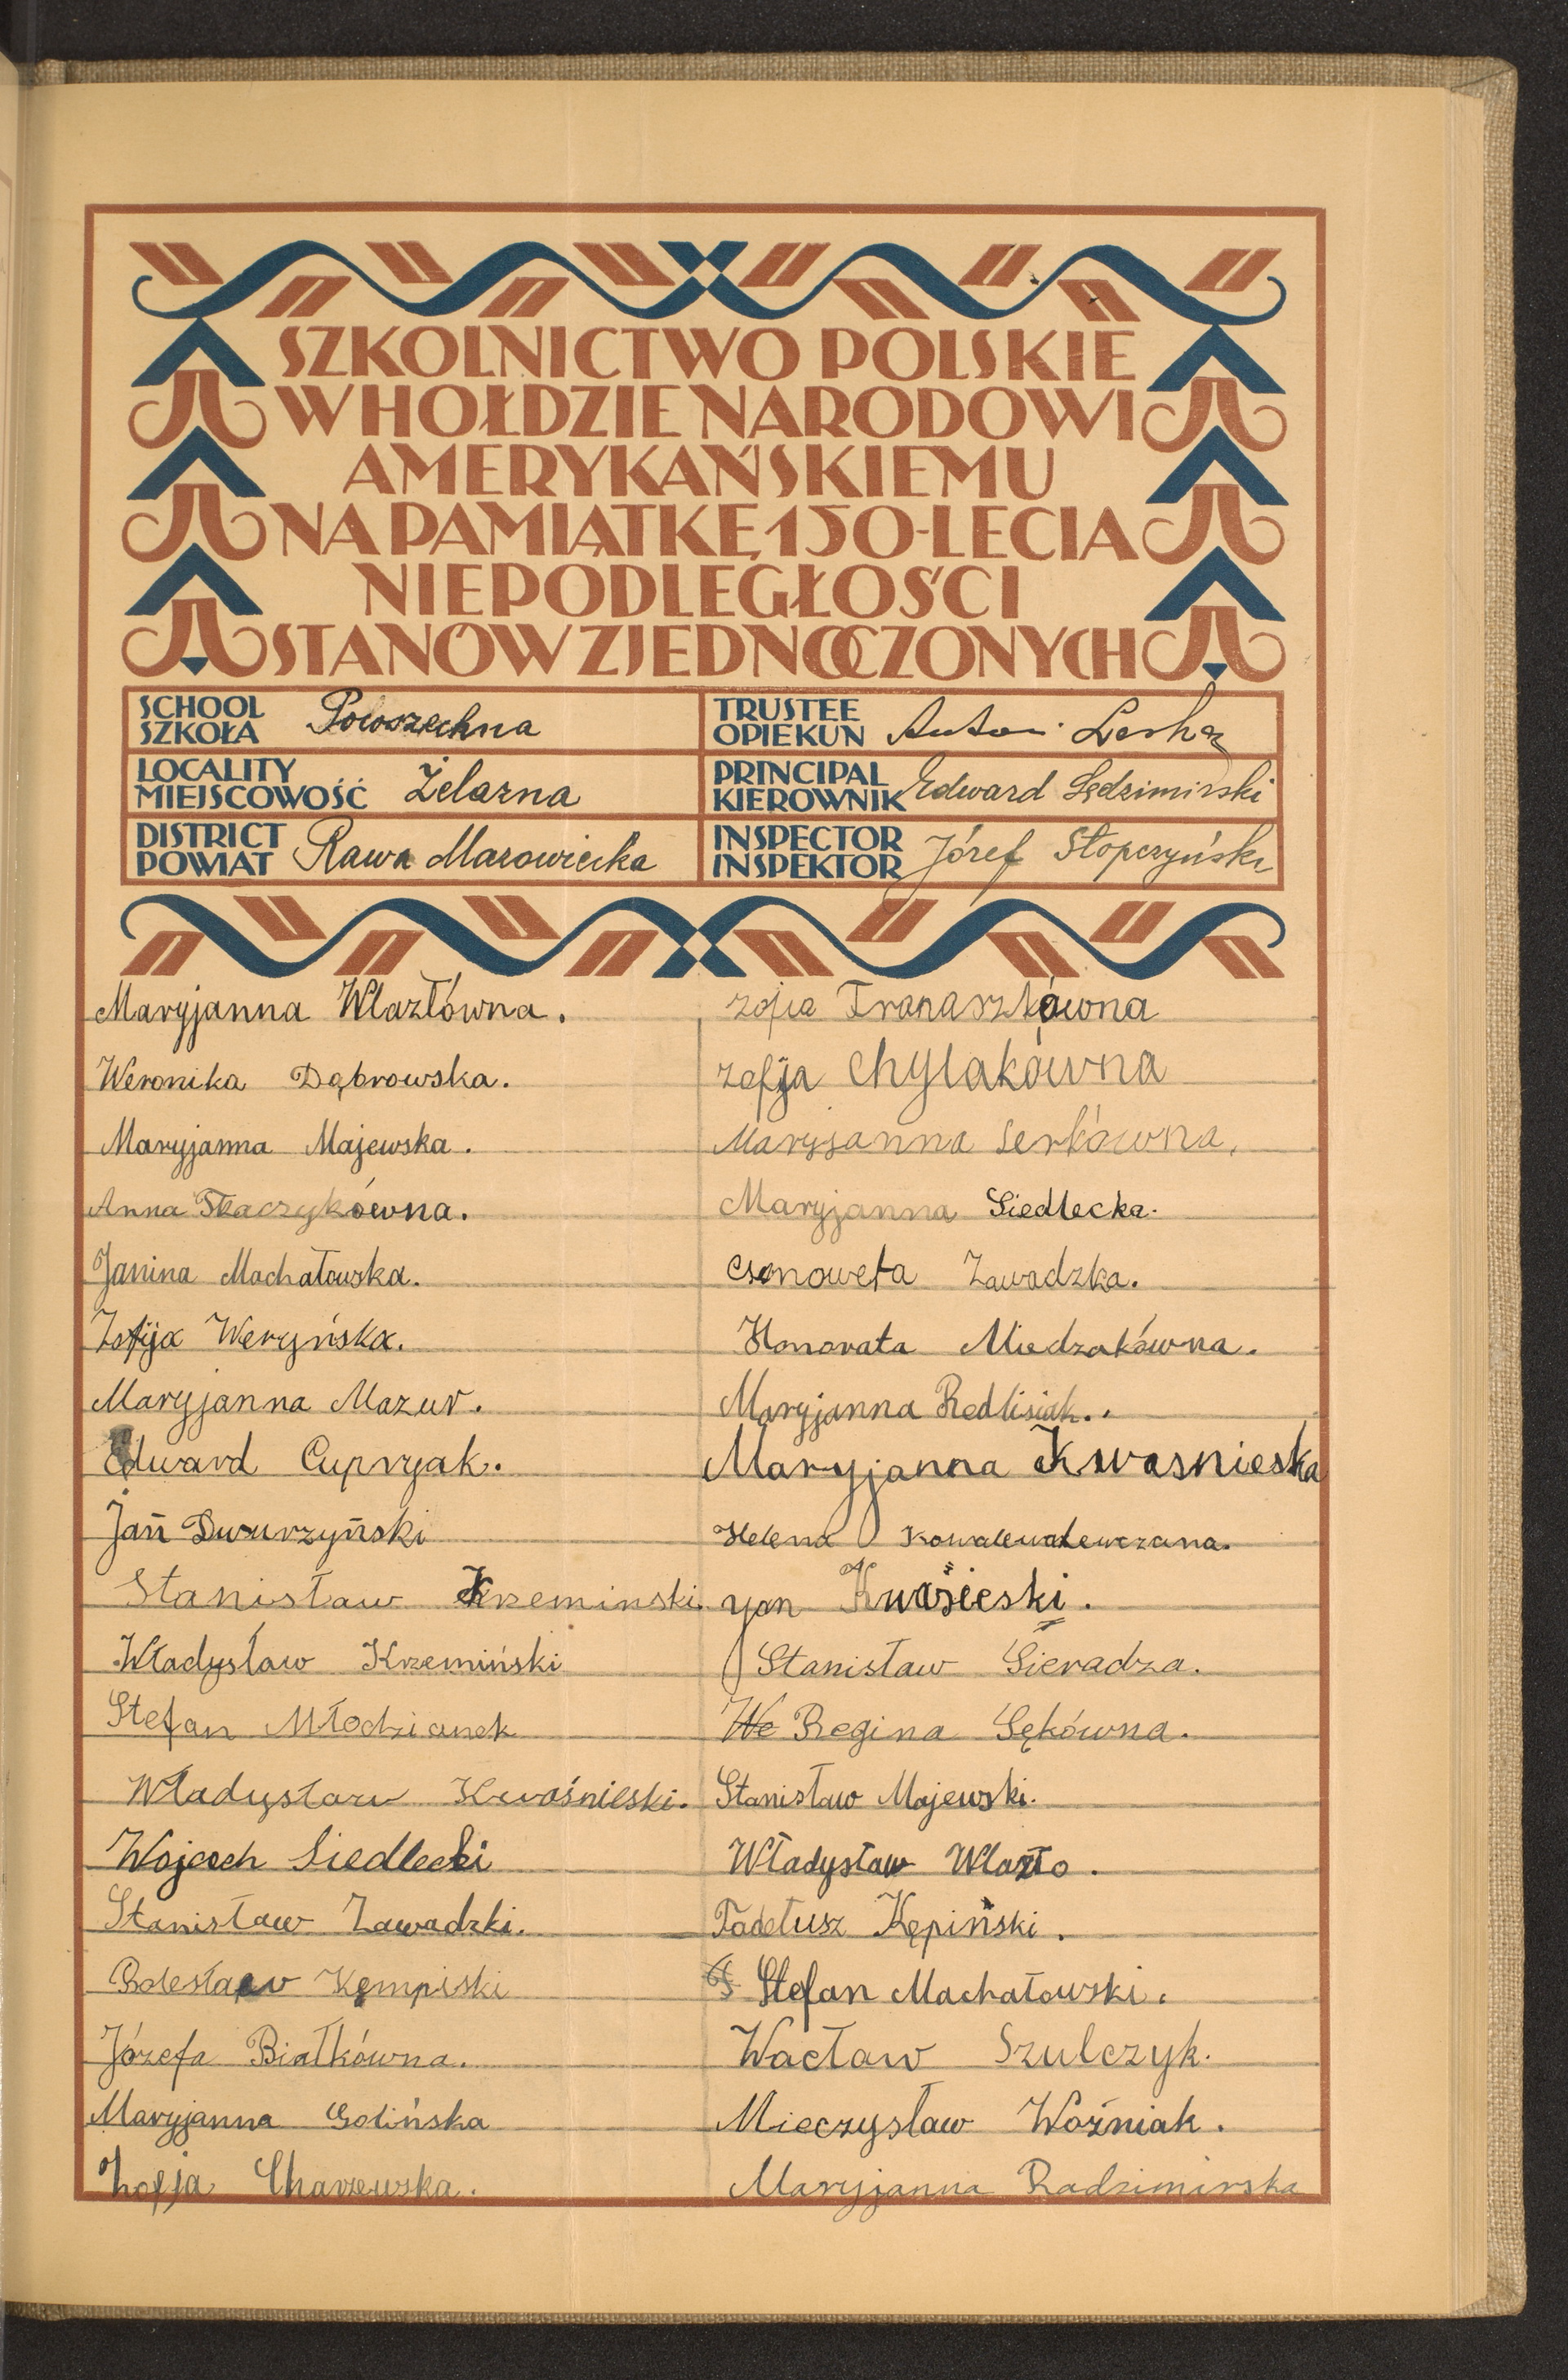 SZKOLNICTWO POLSKIE
W HOŁDZIE NARODOWI
AMERYKAŃSKIEMU
NA PAMIĄTKĘ 150-LECIA
NIEPODLEGŁOŚCI
STANÓW ZJEDNOCZONYCH
SCHOOL
SZKOŁA Powszechna
LOCALITY
MIEJSCOWOŚĆ Żelazna
DISTRICT
POWIAT Rawa Mazowiecka
TRUSTEE
OPIEKUN Antoni
PRINCIPAL
KIEROWNIK Edward Sędzimirski
INSPECTOR
INSPEKTOR Józef Stopczyński
Maryjanna Wlazłówna.
Weronika Dąbrowska.
Maryjanna Majewska.
Anna Tkaczykówna.
Janina Machatowska.
Zofija Weryńska.
Maryjanna Mazur.
Edward Cupryjak.
Jań Dwurzyński
Stanisław Krzeminski
Władysław Krzemiński
Stefan Młodzianek
Władysław Kwaśnieski.
Wojcech Siedlecki
Stanisław Zawadzki.
Bolesław Kempiski
Józefa Białkówna.
Maryjanna Golińska
Zofja Charzewska.
Zofia Tranaszkówna
Zofija Chylakówna
Maryjanna Serkówna.
Maryjanna Siedlecka.
Zawadzka.
Honorata Miedzakówna.
Maryjanna Redlisiak..
Maryjanna Kwasnieska
Helena
yan Kwaśieski.
Stanisław Sieradza.
We Regina Sękówna.
Stanisław Majewski.
Władysław Wlazło.
Tadeusz Kępiński.
Stefan Machatowski.
Wacław Szulczyk.
Mieczysław Woźniak.
Maryjanna Radzimirska